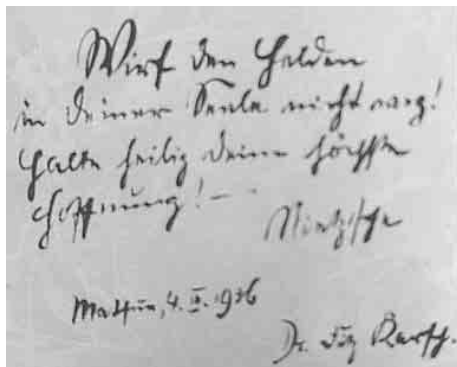 Wirf den Helden
in deiner Seele nicht weg!
Halte heilig deine höchste
Hoffnung! –
Nietzsche
Matsue, 4. 1936
Dr. Fritz Karsch.